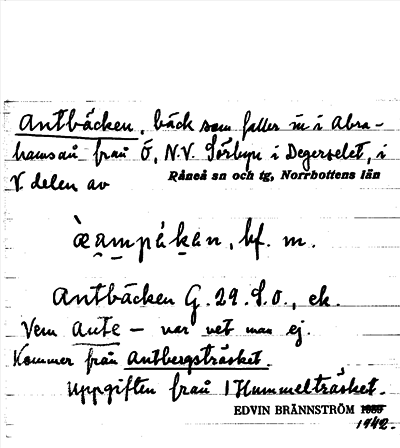 Antbäcken, bäck som faller in i Abra-
hamsån från Ö, N.V. Sörbyn i Degerselet, i
V. delen av Råneå sn och tg, Norrbottens län
bf. m.
Antbäcken G. 29. S.O., ek.
Vem Ante – var vet man ej.
Kommer från Antbergsträsket.
Uppgiften från 1 Hummelträsket.
EDVIN BRÄNNSTRÖM
1942.